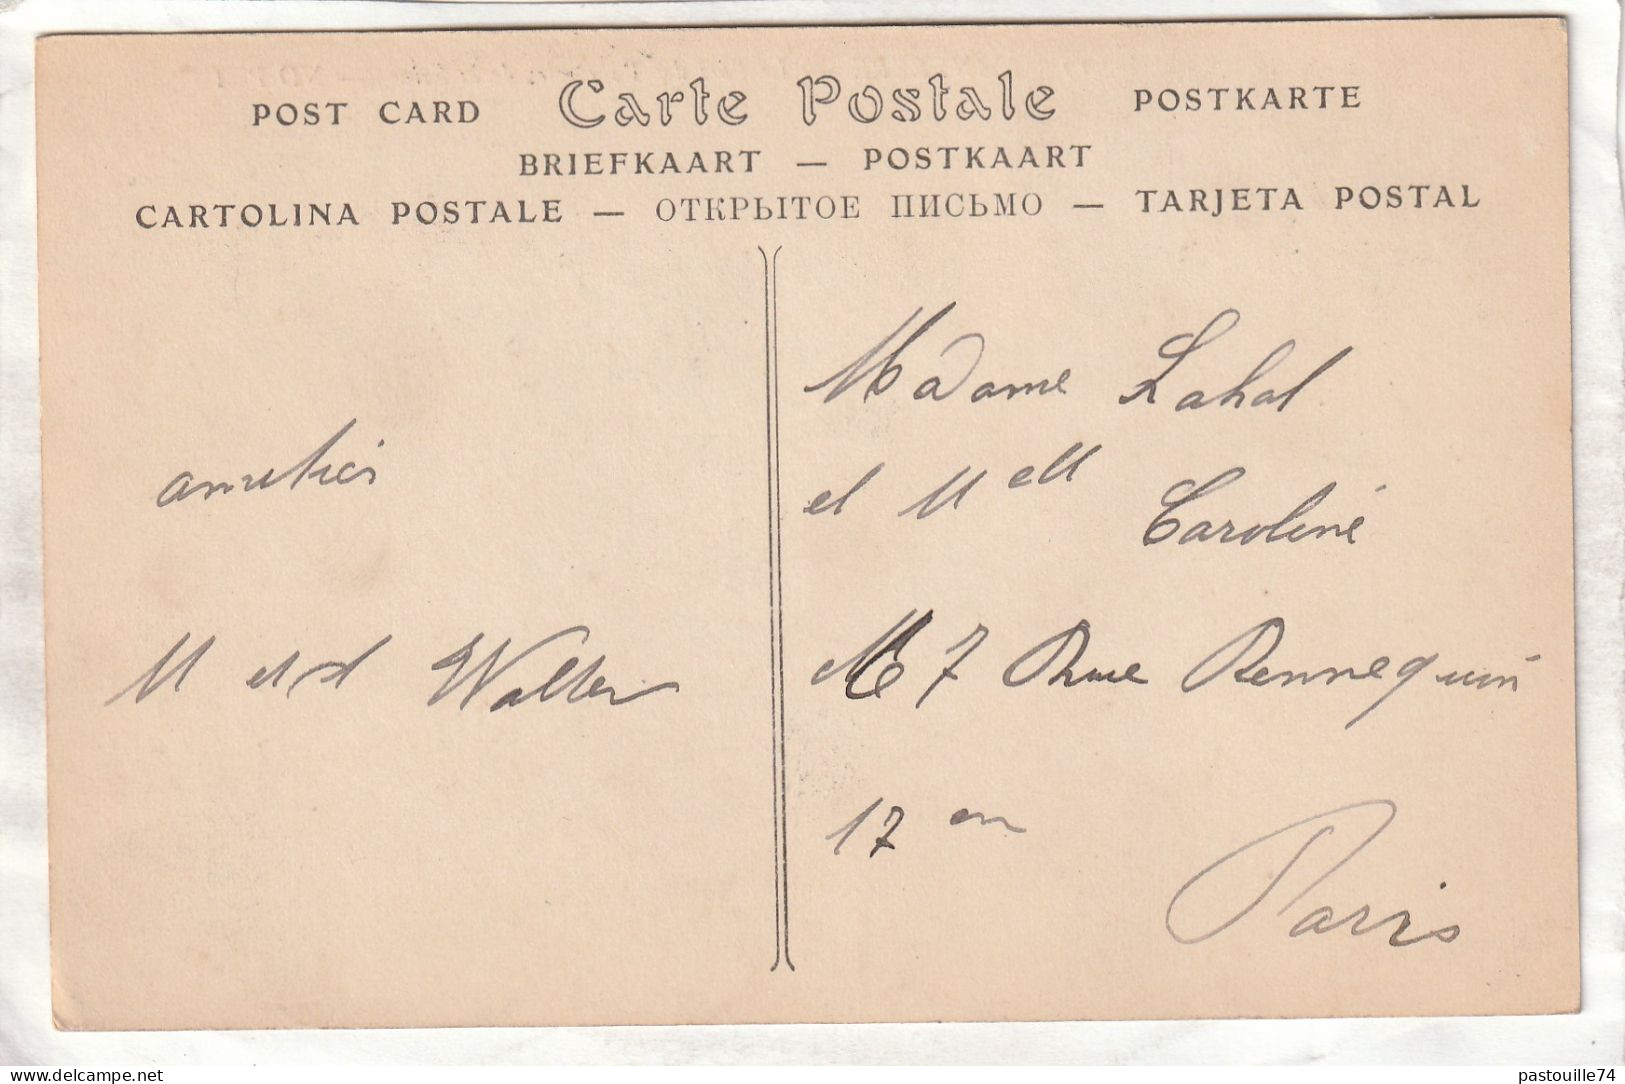 POST CARD Carte Postale POSTKARTE
BRIEFKAART — POSTKAART
CARTOLINA POSTALE — ОТКРЫТОЕ ПИСЬМО — TARJETA POSTAL
amitiés
M et Walter
Madame Lahal
et Mell Caroline
7 Rue Rennequin
17 em
Paris
www.delcampe.net
pastouille74